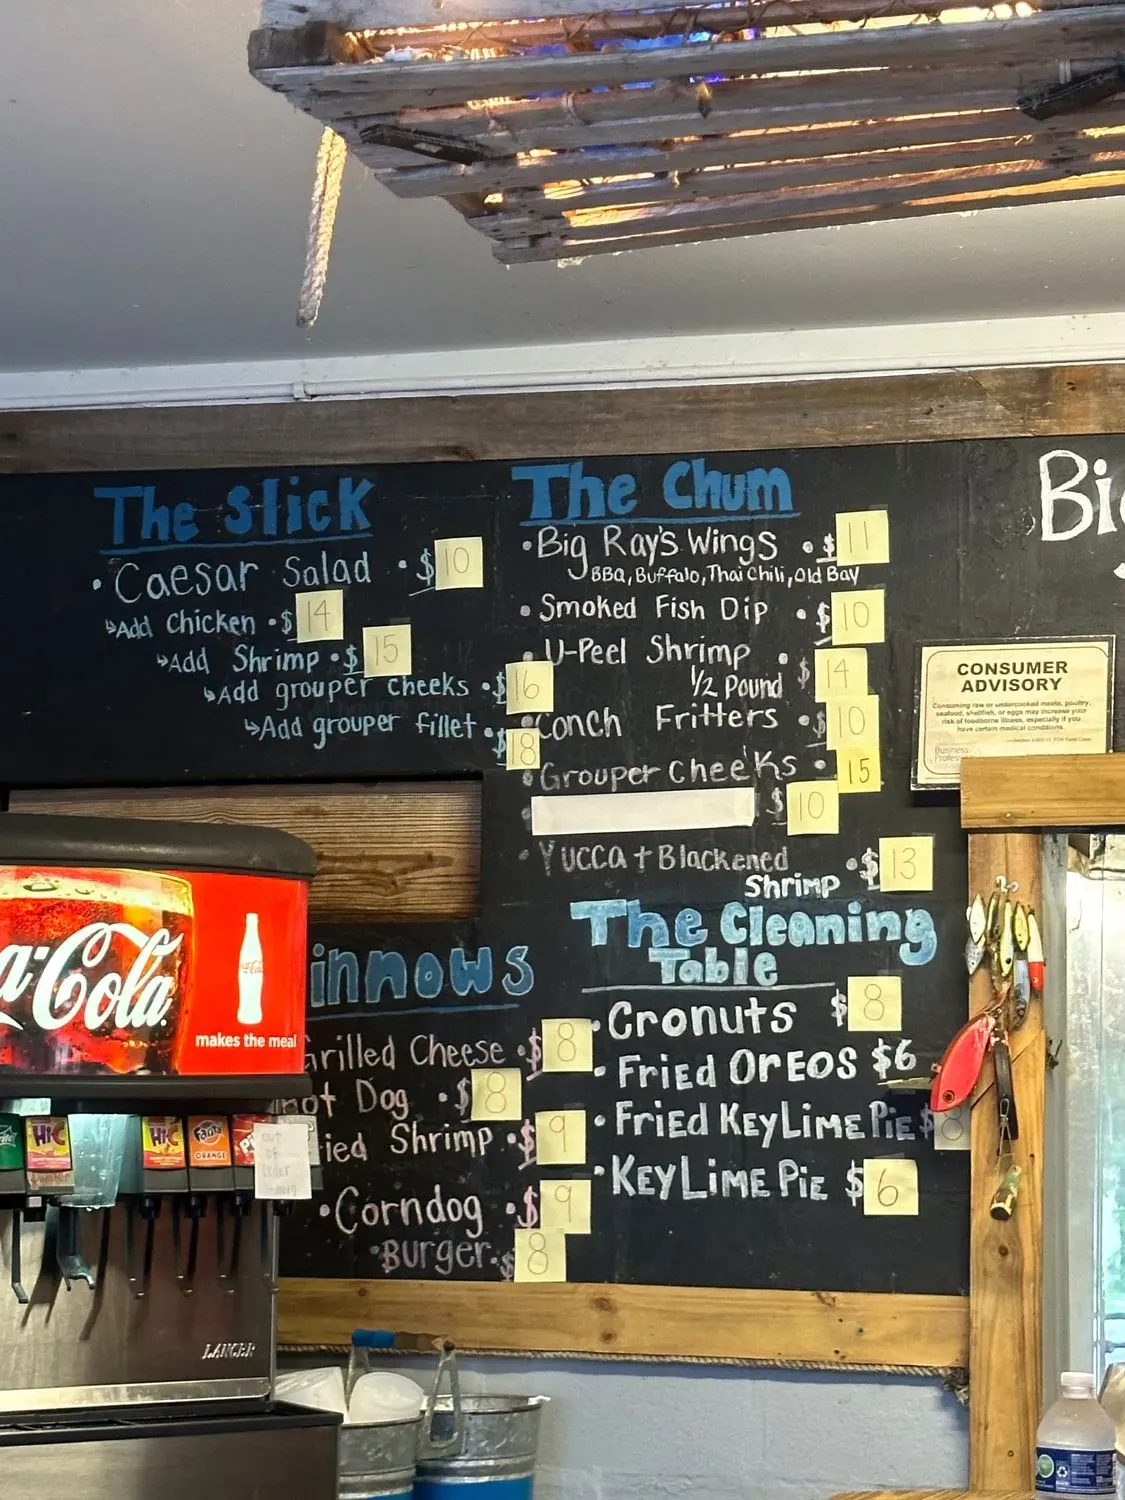 The Slick
• Caesar Salad • $10
↳Add Chicken • $14
↳Add Shrimp • $15
↳Add grouper cheeks • $16
↳Add grouper fillet • $18
The Chum
• Big Ray's Wings • $11
BBQ, Buffalo, Thai Chili, Old Bay
• Smoked Fish Dip • $10
• U-Peel Shrimp • $14
1/2 Pound
• Conch Fritters • $10
• Grouper Cheeks • 15
• $10
• Yucca + Blackened • $13
Shrimp
innows
Grilled Cheese • $8
Hot Dog • $8
ied Shrimp • $9
• Corndog • $9
• Burger • $8
The Cleaning
Table
• Cronuts $8
• Fried Oreos $6
• Fried Key Lime Pie $8
• Key Lime Pie $6
Bi
CONSUMER
ADVISORY
Consuming raw or undercooked meats, poultry,
seafood, shellfish, or eggs may increase your
risk of foodborne illness, especially if you
have certain medical conditions.
Business
Profess
a-Cola
makes the meal
Hi-C
Hi-C
Fanta
ORANGE
Pi
out
of
order
LANCER